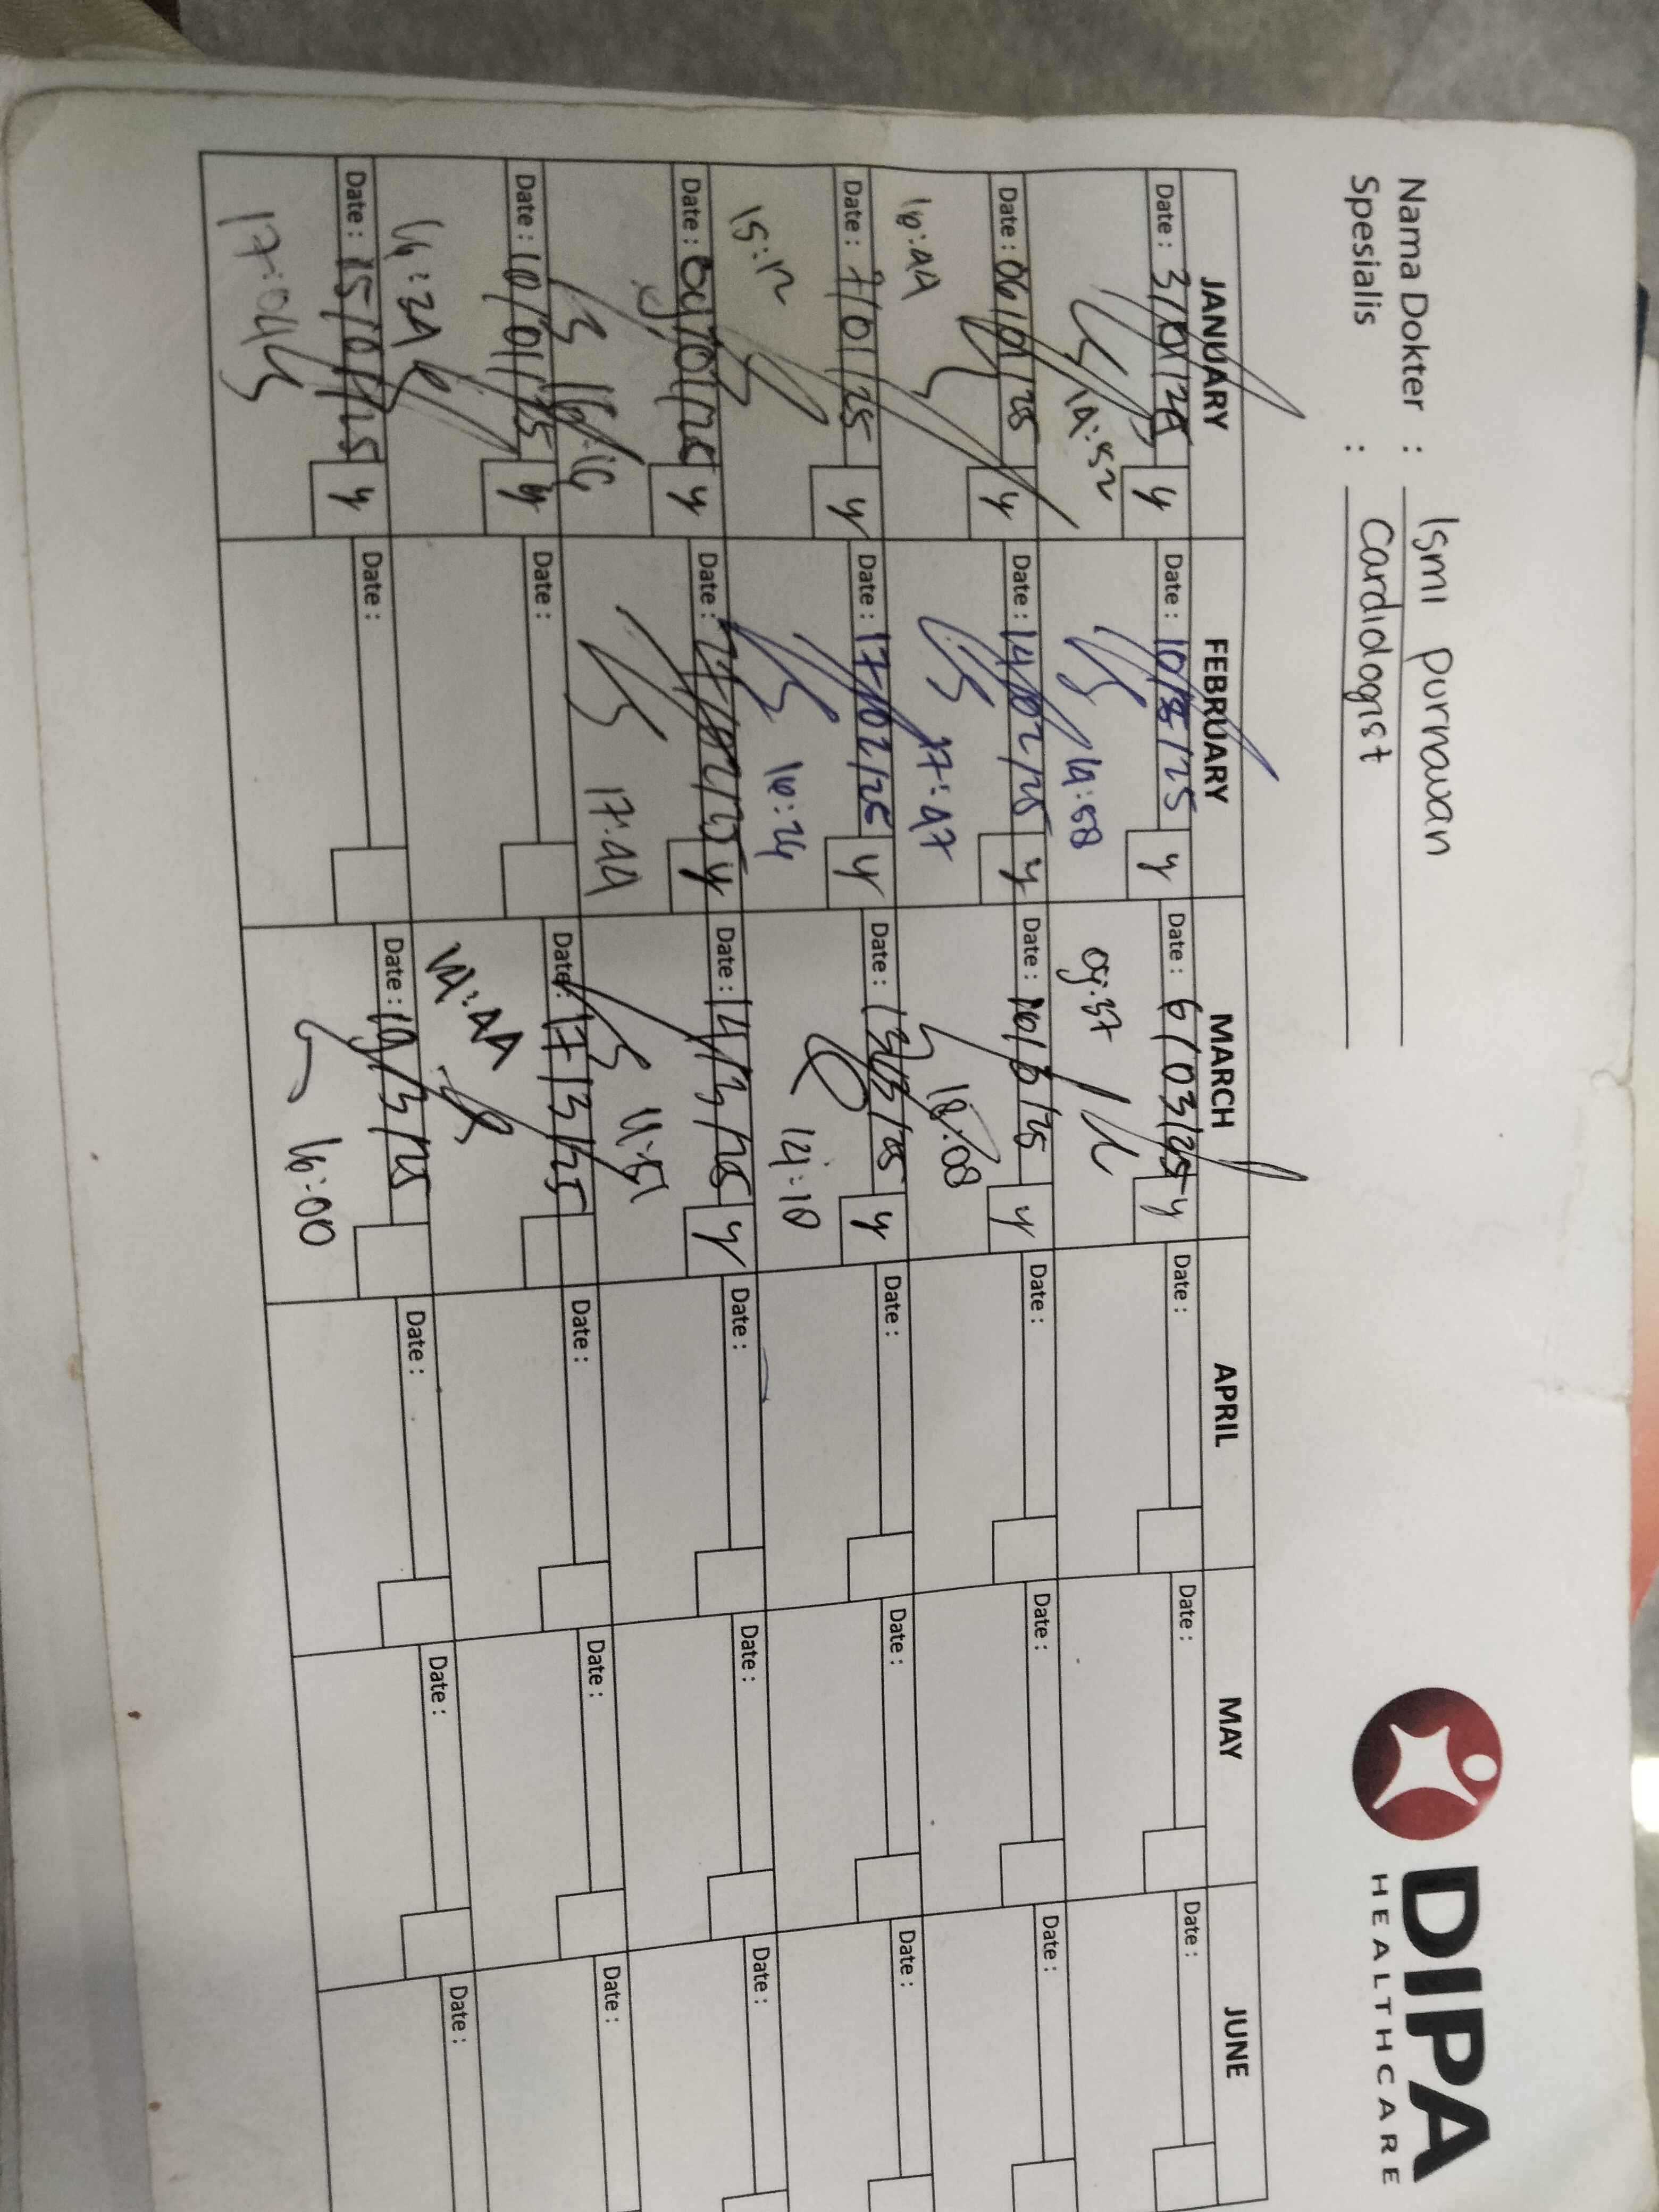 DIPA
HEALTHCARE
Nama Dokter : Ismi purnawan
Spesialis : Cardiologist
JANUARY FEBRUARY MARCH APRIL MAY JUNE
Date : 3/01/25 y Date : 10/ /25 y Date : 6/03/25 y Date : Date : Date :
14:52 14:58 09:37
Date : 06/01/25 y Date : 14/02/25 y Date : 10/3/25 y Date : Date : Date :
16:44 17:47 18:08
Date : 7/01/25 y Date : 17/02/25 y Date : 13/3/25 y Date : Date : Date :
15:12 16:24 14:10
Date : 09/01/25 y Date : 27/02/25 y Date : 14/3/25 y Date : Date : Date :
16:16 17:44
Date : 10/01/25 y Date : Date : 17/3/25 Date : Date : Date :
14:44
Date : 15/01/25 y Date : Date : 19/3/25 Date : Date : Date :
17:04 16:00